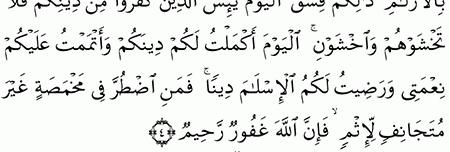 بِالْأَزْلَٰمِ ذَٰلِكُمْ فِسْقٌ الْيَوْمَ يَئِسَ الَّذِينَ كَفَرُوا مِن دِينِكُمْ فَلَا
تَخْشَوْهُمْ وَاَخْشَوْنِ ۚ اَلْيَوْمَ أَكْمَلْتُ لَكُمْ دِينَكُمْ وَأَتْمَمْتُ عَلَيْكُمْ
نِعْمَتِى وَرَضِيتُ لَكُمُ اُلْإِسْلَٰمَ دِينًا ۚ فَمَنِ اِضْطُرَّ فِى مَخْمَصَةٍ غَيْرَ
مُتَجَانِفٍ لِّإِثْمٍ ۙ فَإِنَّ اَللَّهَ غَفُورٌ رَّحِيمٌ ﴿٤﴾